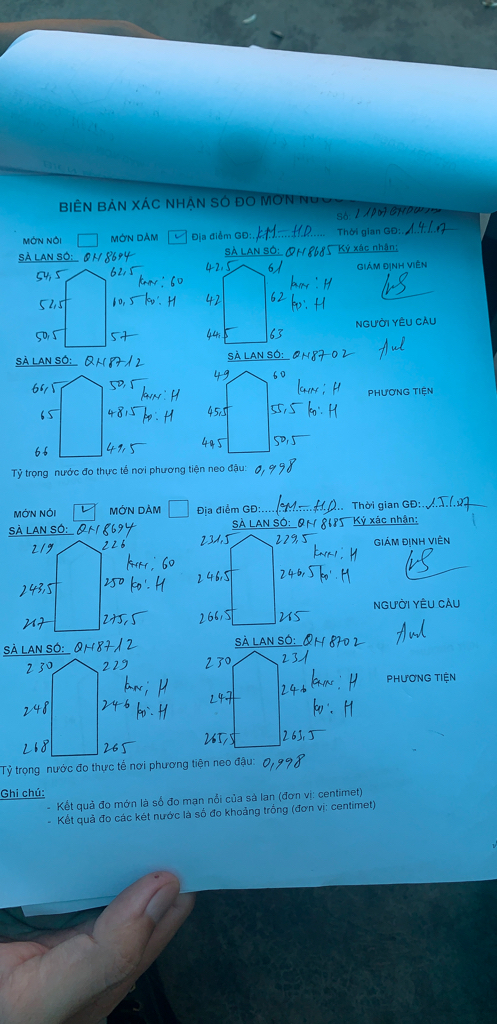 BIÊN BẢN XÁC NHẬN SỐ ĐO MỚN NƯỚC
Số:
MỚN NỔI MỚN DẦM ✓ Địa điểm GĐ: KM-HD Thời gian GĐ: 14/07
SÀ LAN SỐ: QN8694 SÀ LAN SỐ: QN8685 Ký xác nhận:
54,5 62,5 42,5 61 GIÁM ĐỊNH VIÊN
KNN: 60 KNN: H
52,5 60,5 KD: H 42 62 KD: H
50,5 57 44,5 63 NGƯỜI YÊU CẦU
SÀ LAN SỐ: QN8712 SÀ LAN SỐ: QN8702
66,5 50,5 49 60
KNN: H KNN: H PHƯƠNG TIỆN
65 48,5 KD: H 45,5 55,5 KD: H
66 49,5 50,5
Tỷ trọng nước đo thực tế nơi phương tiện neo đậu: 0,998
MỚN NỔI ✓ MỚN DẦM Địa điểm GĐ: KM-HD Thời gian GĐ: 15/07
SÀ LAN SỐ: QN8694 SÀ LAN SỐ: QN8685 Ký xác nhận:
219 226 231,5 229,5 GIÁM ĐỊNH VIÊN
KNN: 60 KNN: H
243,5 250 KD: H 246,5 246,5 KD: H
267 275,5 266,5 265 NGƯỜI YÊU CẦU
SÀ LAN SỐ: QN8712 SÀ LAN SỐ: QN8702
230 229 230 231
KNN: H KNN: H PHƯƠNG TIỆN
248 246 KD: H 247 246 KD: H
268 265 265,5 263,5
Tỷ trọng nước đo thực tế nơi phương tiện neo đậu: 0,998
Ghi chú:
- Kết quả đo mớn là số đo mạn nổi của sà lan (đơn vị: centimet)
- Kết quả đo các két nước là số đo khoảng trống (đơn vị: centimet)